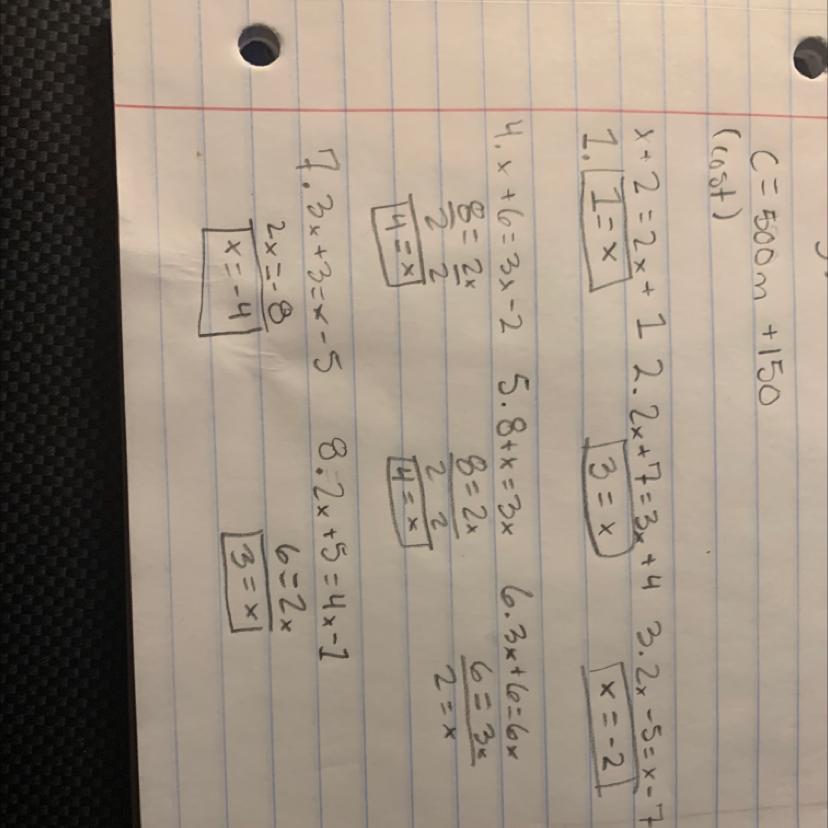 C = 500m + 150
(cost)
x + 2 = 2x + 1 2. 2x + 7 = 3x + 4 3. 2x - 5 = x - 7
1. 1 = x 3 = x x = -2
4. x + 6 = 3x - 2 5. 8 + x = 3x 6. 3x + 6 = 6x
8 = 2x 8 = 2x 6 = 3x
2 2 2 2 2 = x
4 = x 4 = x
7. 3x + 3 = x - 5 8. 2x + 5 = 4x - 1
2x = -8 6 = 2x
x = -4 3 = x